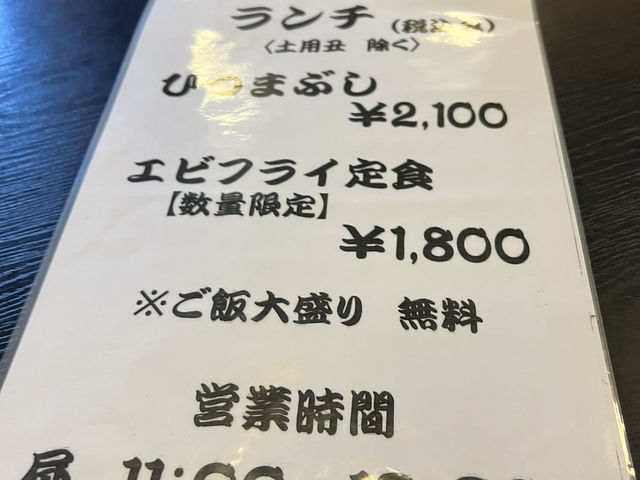 ランチ (税込み)
〈土用丑 除く〉
ひつまぶし
¥2,100
エビフライ定食
【数量限定】
¥1,800
※ご飯大盛り 無料
営業時間
昼 11:00